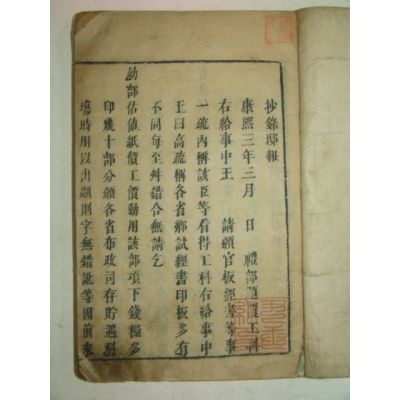 抄錄邸報
康熙三年三月　日　禮部題覆工科
右給事中王　請頒官板經書等事
一疏內稱該臣等看得工科右給事中
王曰高疏稱各省鄉試經書印板多有
不同每至舛錯合無請乞
勅部估値紙價工價動用該部項下錢糧多
印幾十部分頒各省布政司存貯遇科
塲時用以出題則字無錯訛等因前來